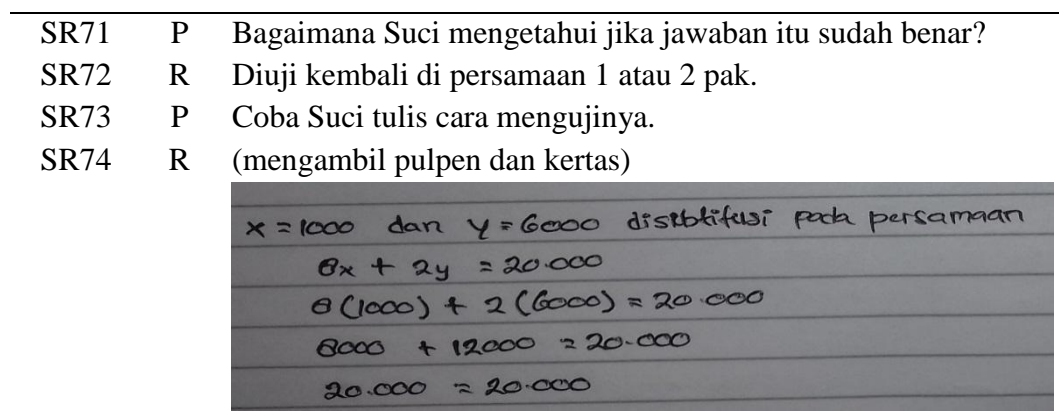 SR71 P Bagaimana Suci mengetahui jika jawaban itu sudah benar?
SR72 R Diuji kembali di persamaan 1 atau 2 pak.
SR73 P Coba Suci tulis cara mengujinya.
SR74 R (mengambil pulpen dan kertas)
x = 1000 dan y = 6000 distibtifusi pada persamaan
8x + 2y = 20.000
8(1000) + 2(6000) = 20.000
8000 + 12000 = 20.000
20.000 = 20.000